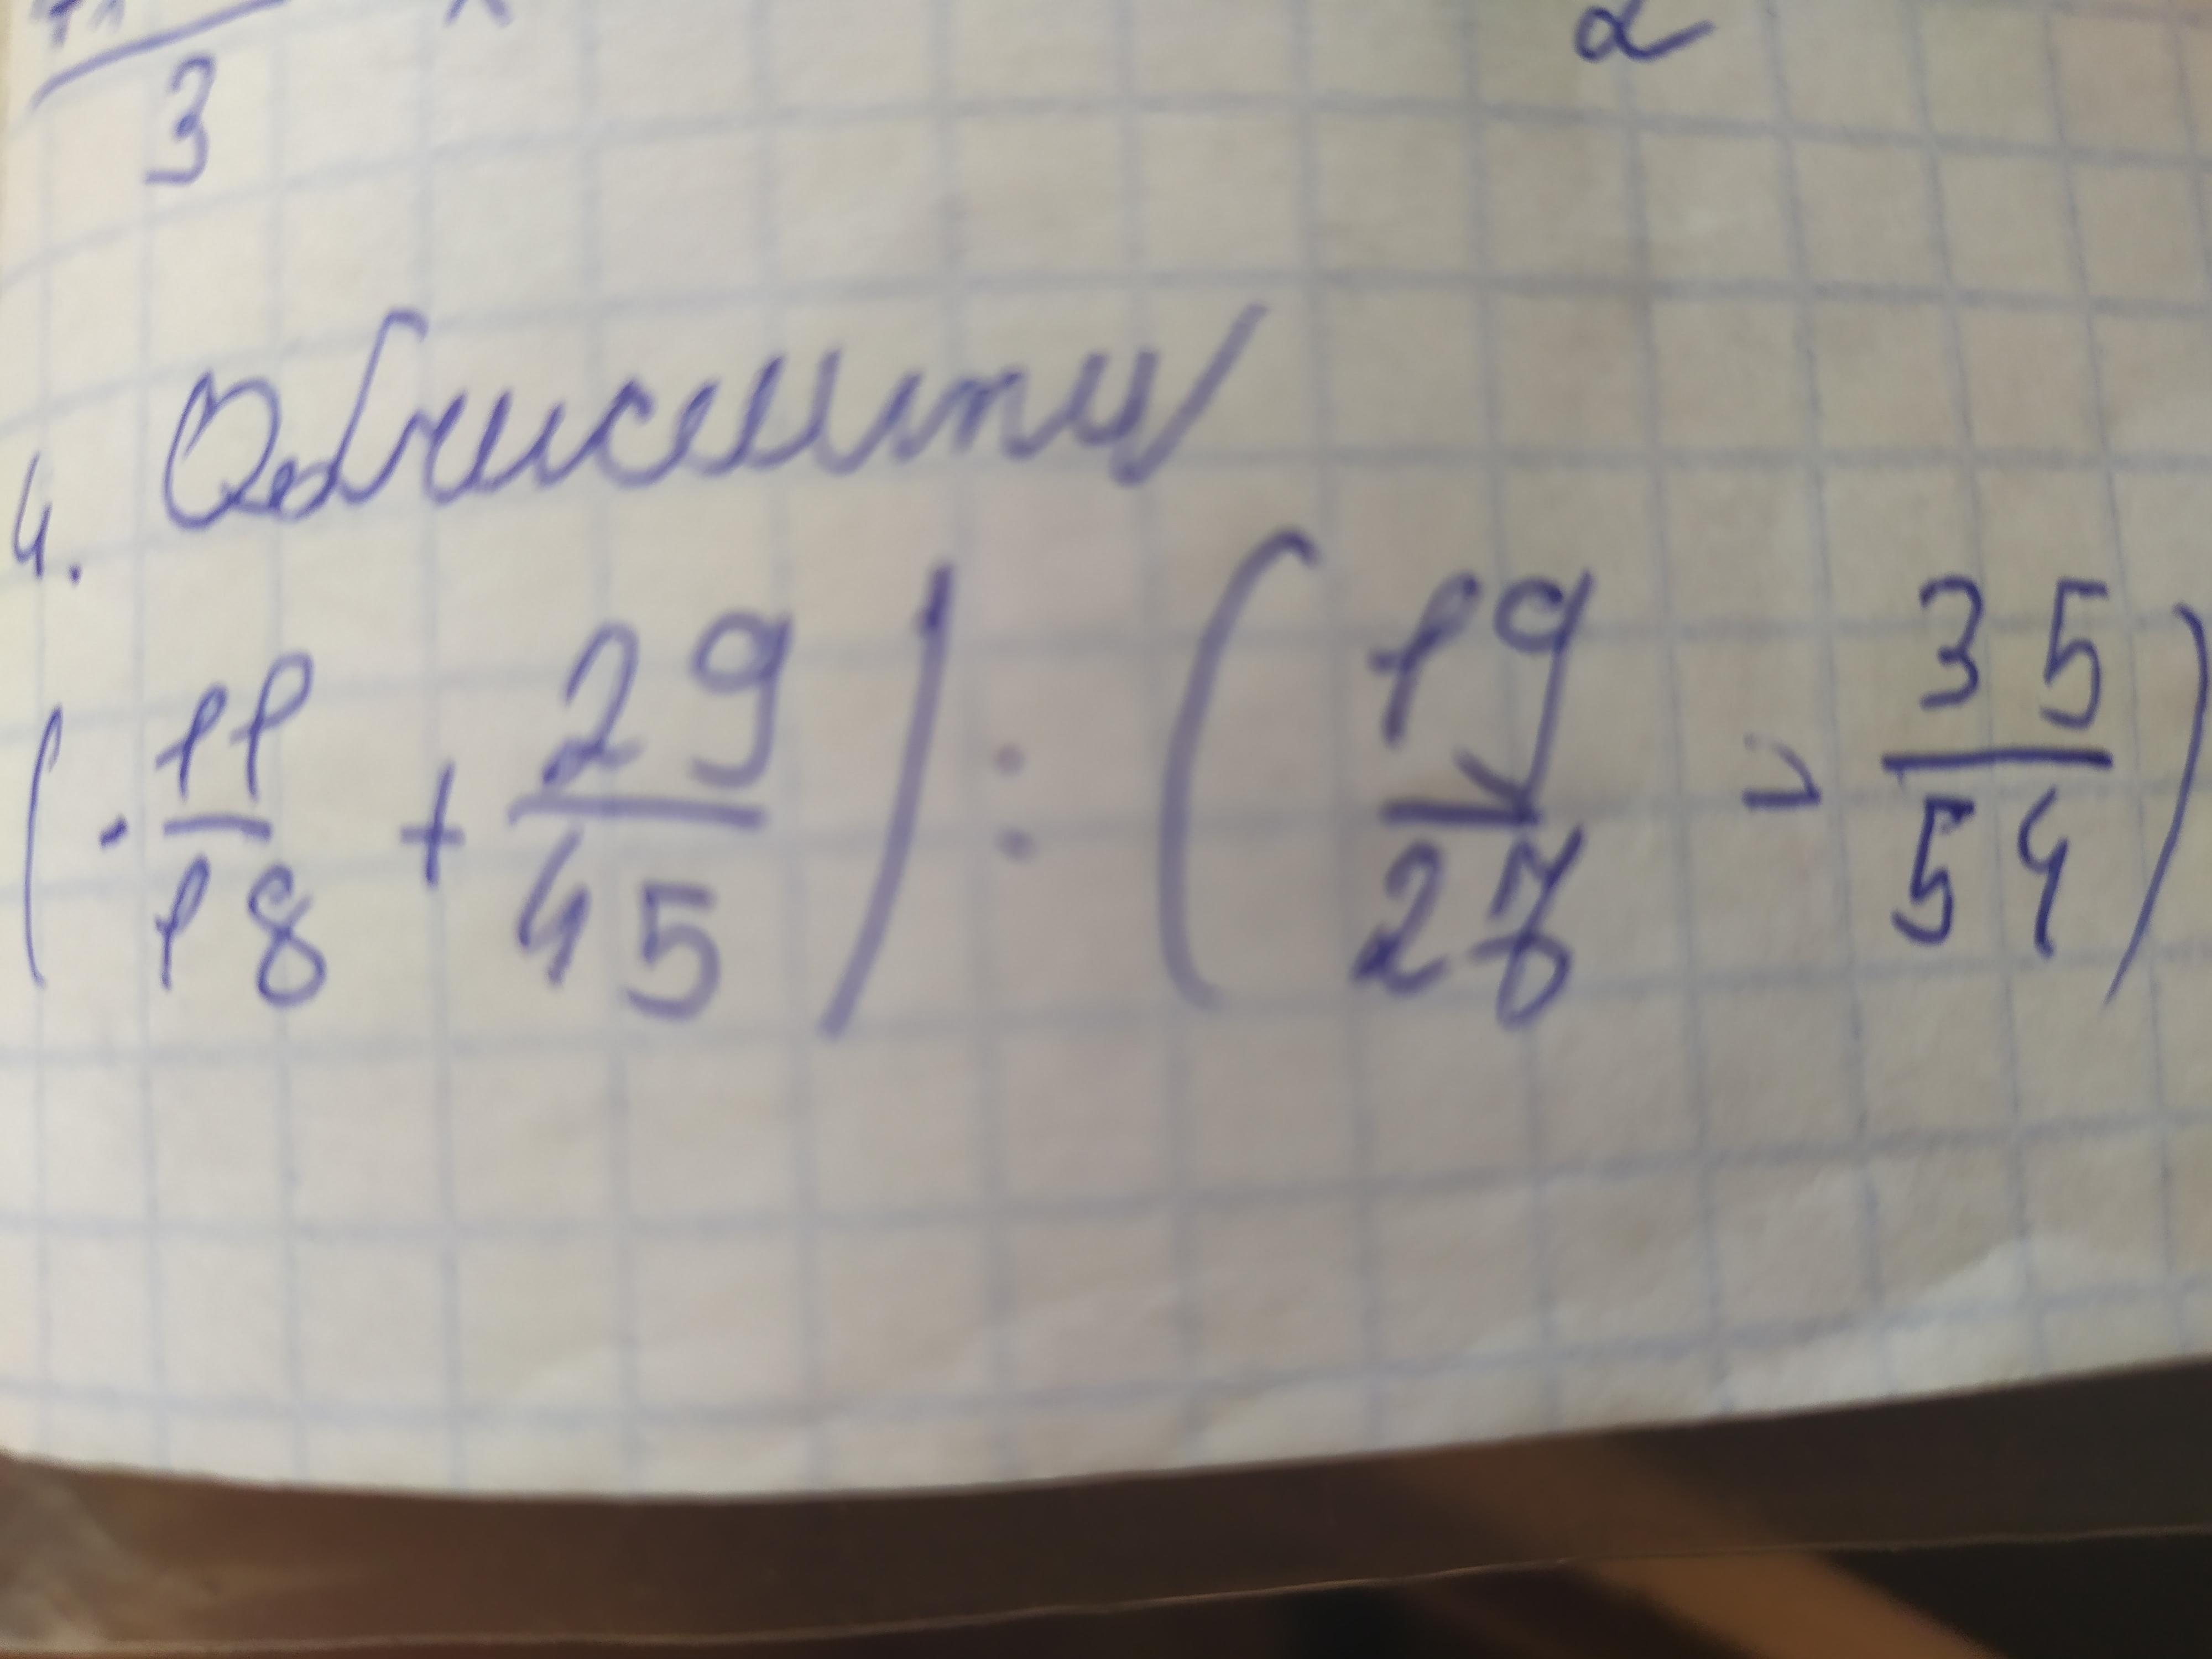 3 2
4. Обчислити
(-11/18 + 29/45) : (19/27 - 35/54)